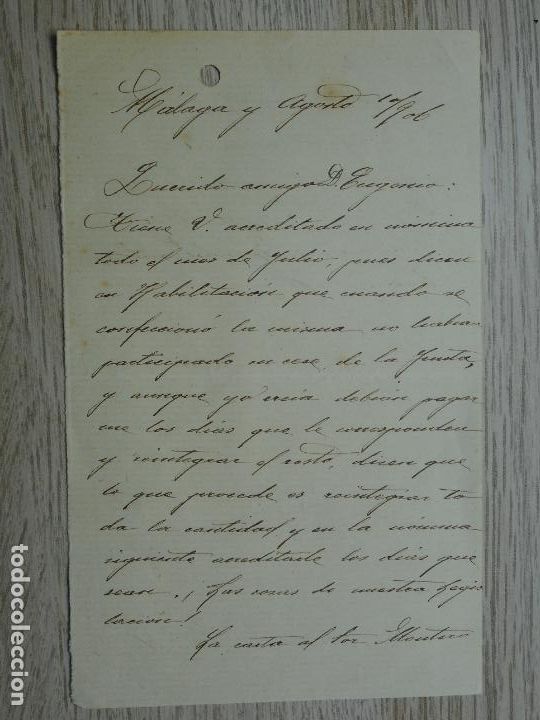 Málaga y Agosto 10/906
Querido amigo D. Eugenio:
Tiene V. acreditado en nómina
todo el mes de Julio, pues dicen
en Habilitación que cuando se
confeccionó la misma no habian
participado su cese de la Junta,
y aunque yo creía debian pagar
me los dias que le corresponden
y reintegrar el resto, dicen que
lo que procede es reintegrar to
da la cantidad y en la nómina
siguiente acreditarle los dias que
sean. ¡Las cosas de nuestra legis
lación!
La carta al Sor. Montero
todocoleccion.net